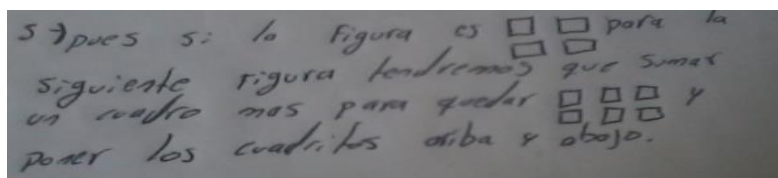 5) pues si la Figura es □ □ para la
□ □
siguiente Figura tendremos que sumar
un cuadro mas para quedar □ □ □ y
□ □ □
poner los cuadritos ariba y abajo.